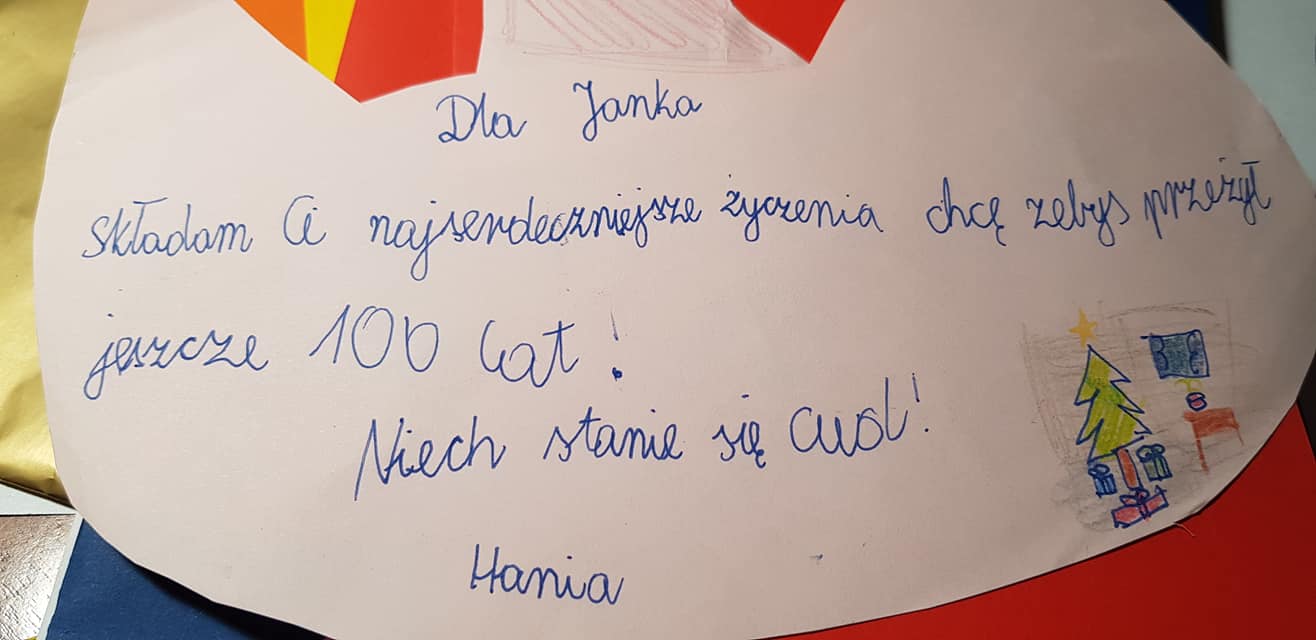 Dla Janka
Składam Ci najserdeczniejsze życzenia chcę zebys przeżył
jeszcze 100 lat!
Niech stanie się cud!
Hania